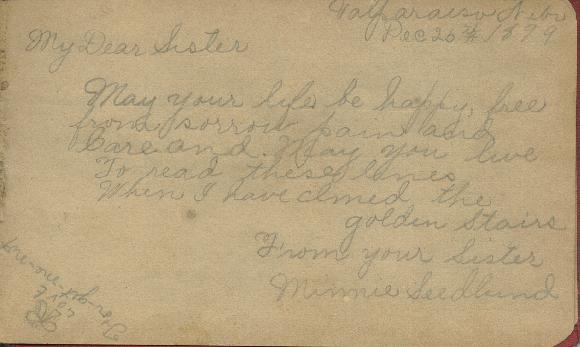 Valparaiso Nebr
Dec 26th 1899
My Dear Sister
May your life be happy, free
from sorrow pain and
Care and. May you live
To read these lines
When I have climed the
golden Stairs
From your Sister
Minnie Seedlund
For-get-me-not